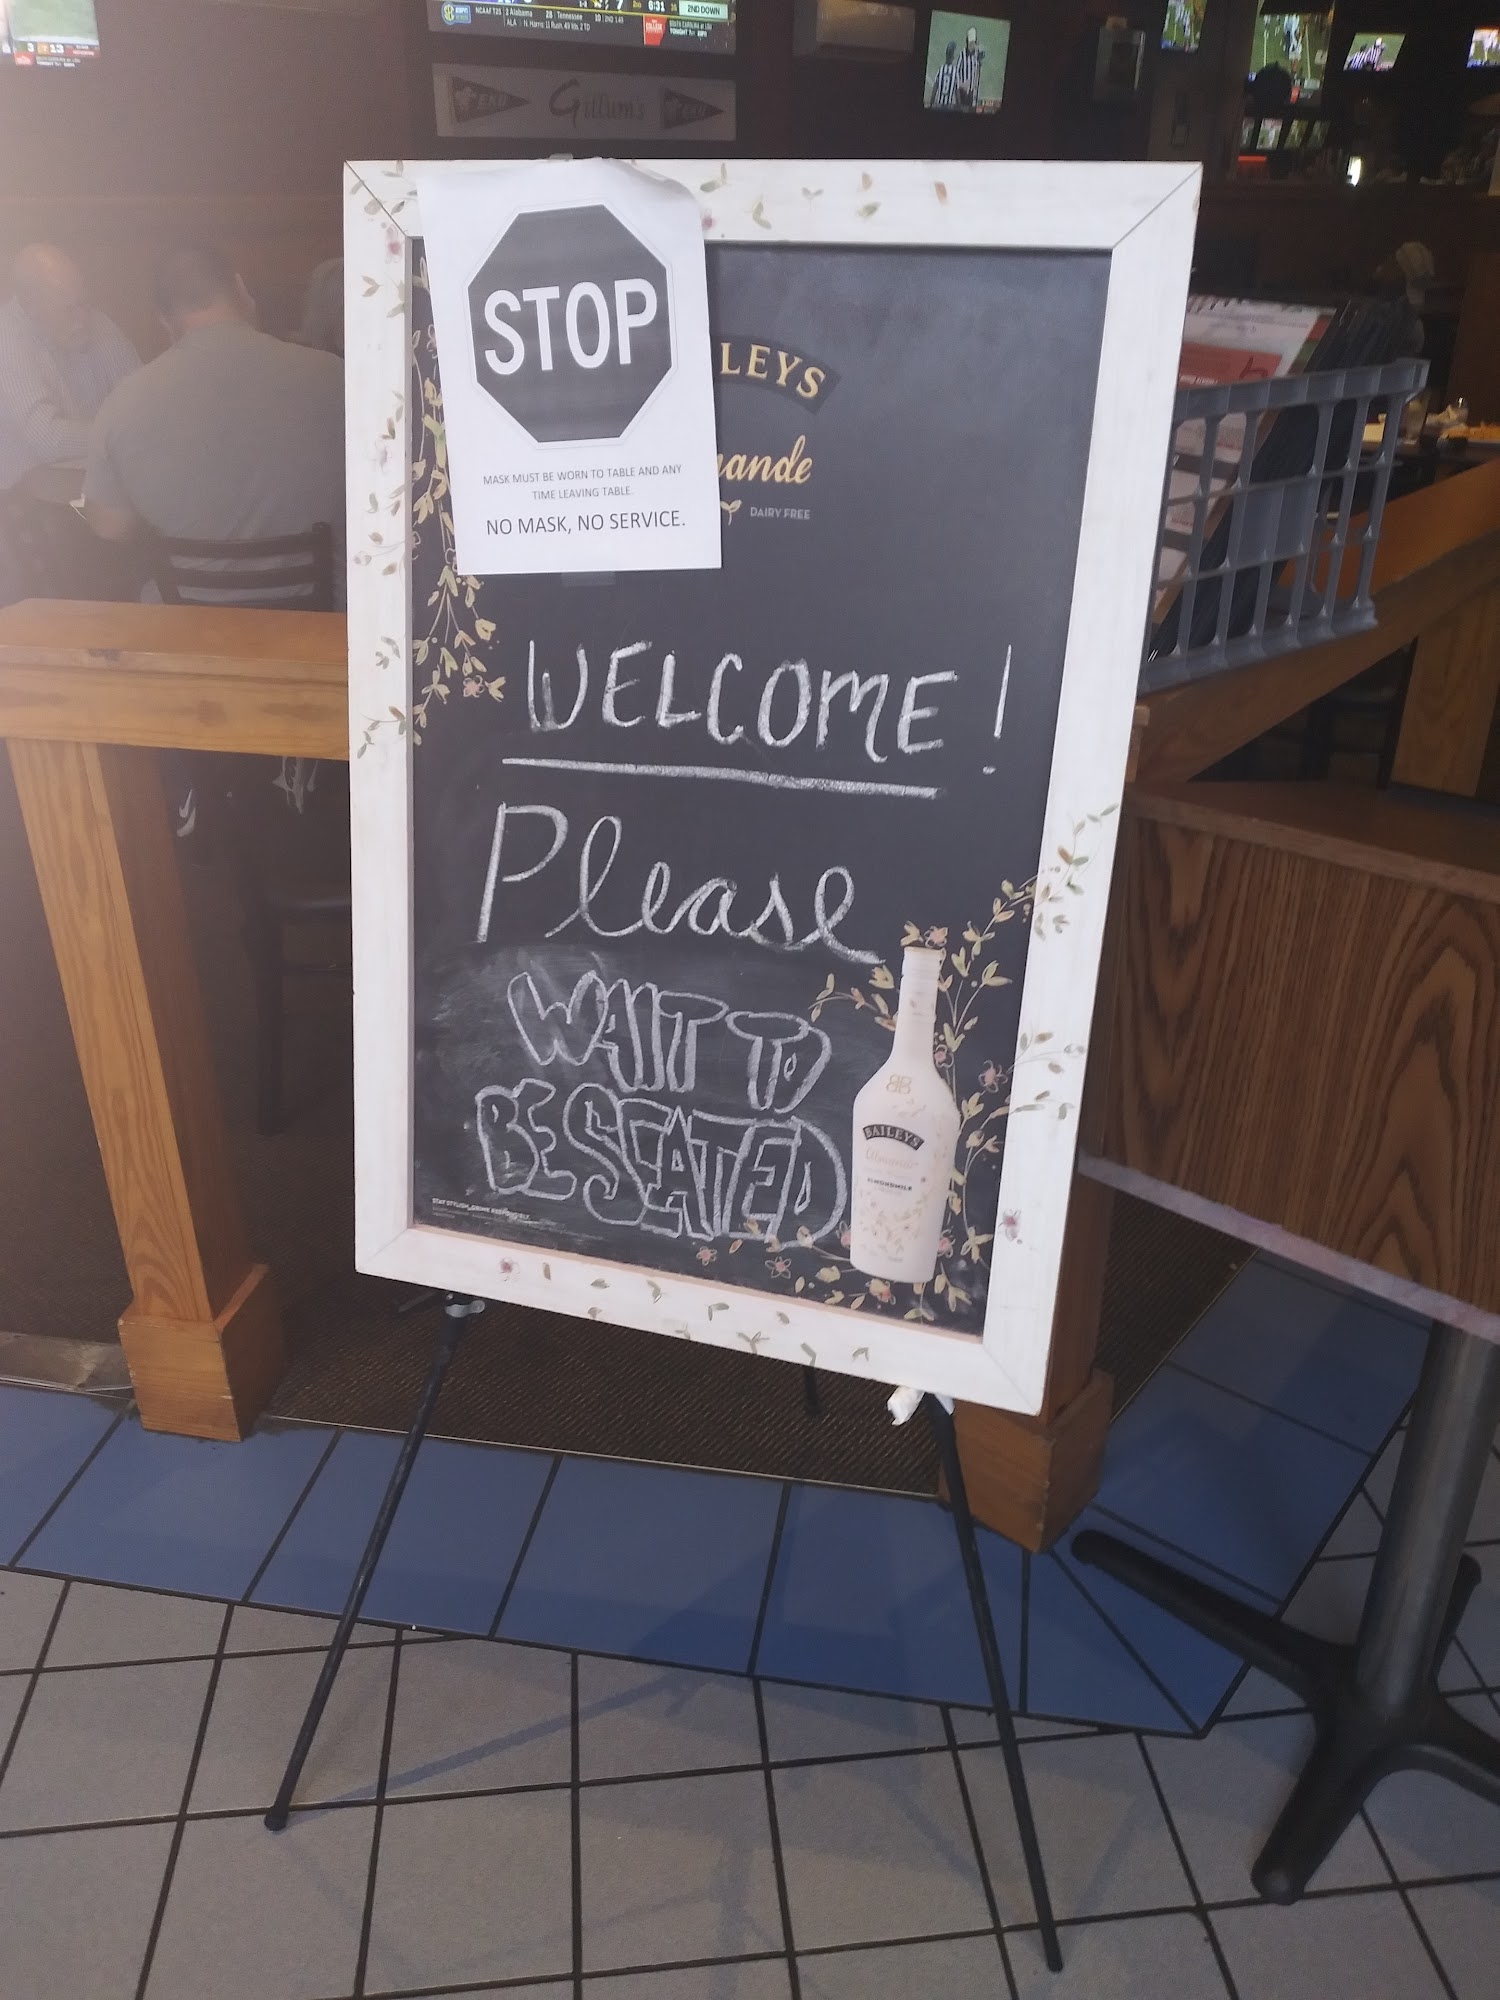 NCAAF T25 2 Alabama 28 Tennessee 10 2ND 1:49
2ND DOWN
6:31
7
ALA N. Harris: 11 Rush, 49 Yds, 2 TD
3 13
EKU Gillum's EKU
STOP
MASK MUST BE WORN TO TABLE AND ANY
TIME LEAVING TABLE.
NO MASK, NO SERVICE.
LEYS
ande
DAIRY FREE
WELCOME!
Please
WAIT TO
BE SEATED
BAILEYS
ALMONDMILK